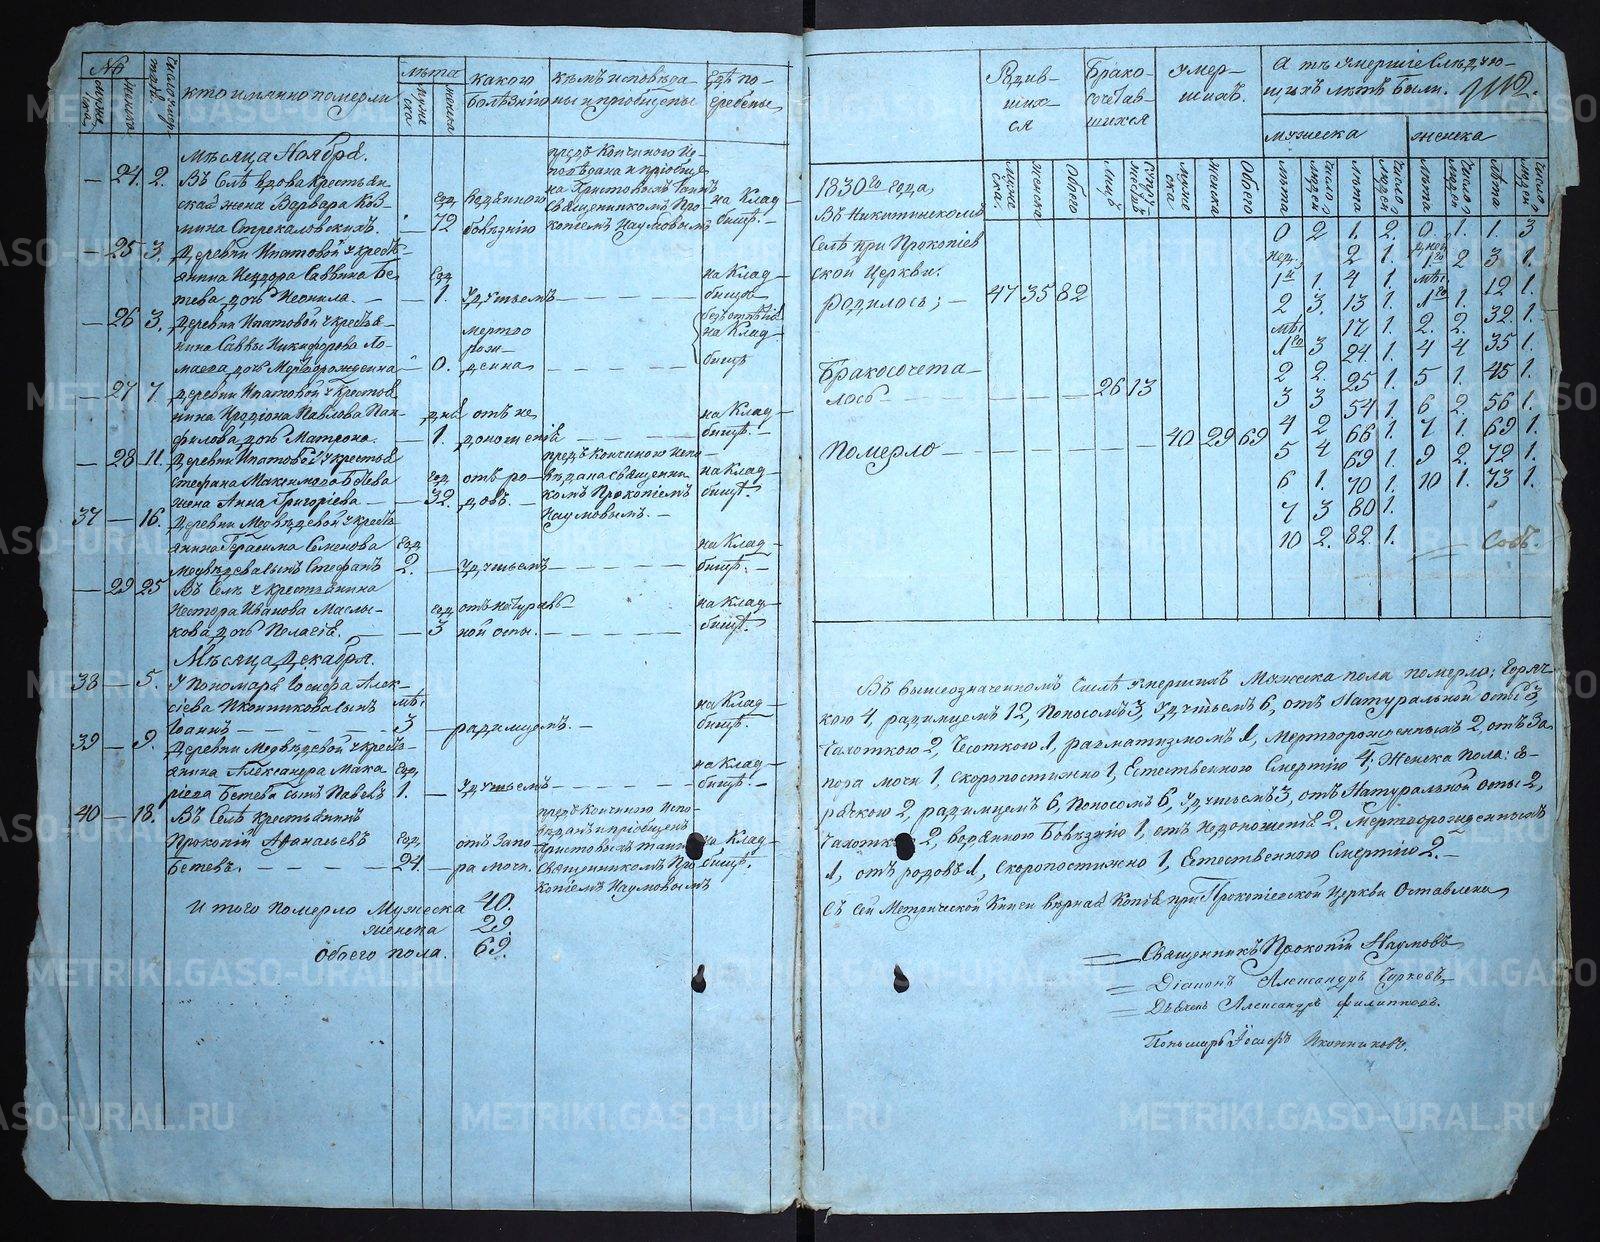 №
мужеска
женска
Число и дни смерти.
кто имянно померли
лѣта
мужеска
женска
какою
болѣзнію
кѣмъ исповѣда-
ны и пріобщены
гдѣ по-
гребены
Мѣсяца Ноября.
— 24. 2. Въ Селѣ вдова крестьян
ская жена Варвара Коз
мина Стрекаловскихъ.
год
72
водяною
болѣзнію
предъ кончиною ис-
повѣдана и пріобще
на Христовыхъ Таинъ
Священникомъ Про
копіемъ Наумовымъ
на Клад-
бищѣ.
— 25 3. Деревни Ипатовой у кресть-
янина Саввина Бе-
тева дочь Неонила. —
год
1.
удушьемъ
на Клад-
бищѣ
— 26 3. Деревни Ипатовой у крестья-
нина Саввы Никифорова Ло-
маева дочь Мертворожденна
0.
мертво
рож-
денна
безъ отпѣтія
на Клад-
бищѣ
— 27 7. Деревни Ипатовой у Крестья
нина Иродіона Павлова Пан-
филова дочь Матрона.
дней
1.
отъ не
доношенія
на Клад-
бищѣ. —
— 28 11. Деревни Ипатовой у крестья
Стефана Максимова Бѣлева
жена Анна Григоріева —
год
32.
отъ ро-
довъ. —
предъ кончиною испо
вѣдана Священни
комъ Прокопіемъ
Наумовымъ. —
на Клад-
бищѣ.
37 — 16. Деревни Медвѣдевой у кресть
янина Герасима Семенова
Медвѣдева сынъ Стефанъ
год
2.
удушьемъ
на Клад-
бищѣ. —
— 29 25 Въ Селѣ у крестьянина
Нестора Иванова Маслы-
кова дочь Пелагія.
год
3
отъ натураль-
ной оспы.
на Клад-
бищѣ.
Мѣсяца Декабря.
38 — 5. У Пономаря Іосифа Алек-
сіева Иконникова сынъ
Іоаннъ
мѣс
3
радимцемъ. —
на Клад-
бищѣ.
39 — 9. Деревни Медвѣдевой у кресть-
янина Александра Мака
ріева Бетева сынъ Павелъ
год
1.
удушьемъ
на Клад-
бищѣ. —
40 — 18. Въ Селѣ крестьянинъ
Прокопій Афанасьевъ
Бетевъ.
год
24.
отъ запо
ра мочи.
предъ кончиною испо-
вѣданъ и пріобщенъ
Христовыхъ таинъ
Священникомъ Про
копіемъ Наумовымъ
на Клад-
бищѣ.
Итого померло Мужеска 40.
женска 29.
Обоего пола. 69.
Родив-
ших-
ся
Брако-
сочетав-
шихся
Умер-
шихъ.
А тѣ умершіе слѣдую-
щихъ лѣтъ были.
мужеска
женска
мужеска.
женска
Обоего
Лицъ
Супружествъ
мужеска
женска
Обоего
лѣта
число людей
лѣта
число людей
лѣта
число людей
лѣта
число людей
1830го года,
Въ Никитинскомъ
Селѣ при Прокопіев
ской Церкви.
родилось; — 47 35 82
Бракосочета-
лось — 26 13
Померло — 40 29 69
0 2 1. 2. 0. 1. 1. 3
нед. 2 1. дней 2 3 1.
1. 4 1. мѣс 12 1.
2 3. 13 1. 1. 32. 1.
мѣс 17 1. 2. 2. 35 1.
3 24 1. 4 4 45 1.
2 2. 25 1. 5 1. 56 1.
3 3 54 1. 6 2. 69 1.
4 2 66 1. 7 1. 72 1.
5 4 69 1. 9 2. 73 1.
6 1. 70 1. 10 1.
7 3 80 1.
10 2. 82. 1.
Въ вышеозначенномъ числѣ умершихъ Мужеска пола померло; горяч-
кою 4, радимцемъ 12, Поносомъ 3, Удушьемъ 6, отъ Натуральной оспы 3,
Чахоткою 2, Чесоткою 1, равматизмомъ 1, Мертворожденныхъ 2, отъ За-
пора мочи 1, скоропостижно 1, Естественною Смертію 4; Женска Пола: го-
рячкою 2, радимцемъ 6, Поносомъ 6, Удушьемъ 3, отъ Натуральной оспы 2,
Чахоткою 2, водяною Болѣзнію 1, отъ Недоношенія 2. Мертворожденныхъ
1, отъ родовъ 1, Скоропостижно 1, Естественною Смертію 2. —
Съ сей Метрической Книги вѣрная Копія при Прокопіевской Церкви Оставлена,
Священникъ Прокопій Наумовъ
Діаконъ Александръ Чурковъ
Дьячекъ Александръ Филипповъ.
Пономарь Іосифъ Иконниковъ.
METRIKI.GASO-URAL.RU